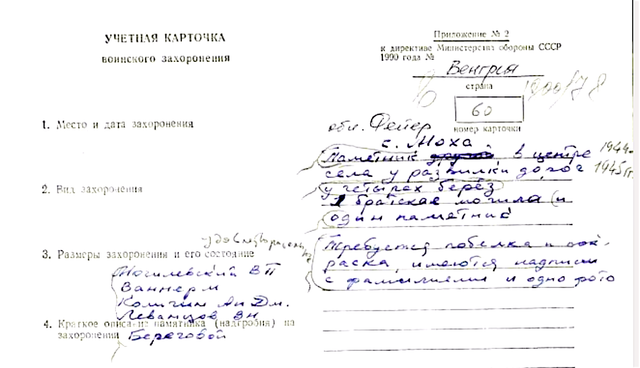 УЧЕТНАЯ КАРТОЧКА
воинского захоронения
Приложение № 2
к директиве Министерства обороны СССР
1990 года №
Венгрия
страна
60
номер карточки
1. Место и дата захоронения
обл. Фейер
с. Моха
Памятник в центре 1944-
села у развилки дорог 1945 гг.
у четырех берёз
2. Вид захоронения
1 братская могила и
один памятник
3. Размеры захоронения и его состояние
удовлетворительно
Требуется побелка и ок-
раска, имеются надписи
с фамилиями и одно фото
Могилевский В П
Ваннерм
Количин Ан Дм.
Леванцов ВН
4. Краткое описание памятника (надгробия) на
захоронении Береговой